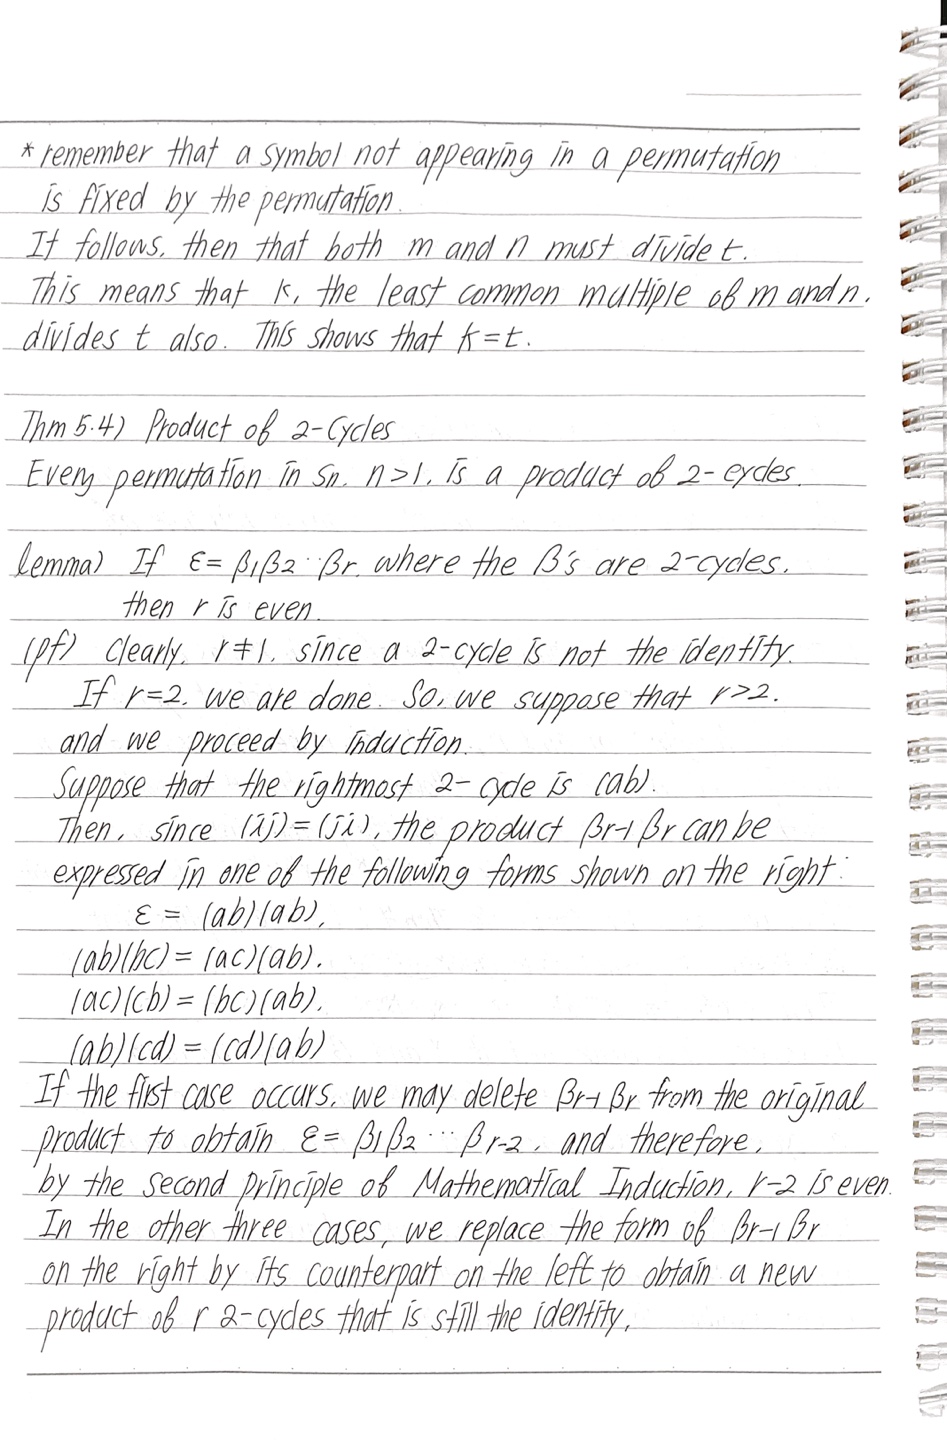 * remember that a symbol not appearing in a permutation
is fixed by the permutation.
It follows, then that both m and n must divide t.
This means that k, the least common multiple of m and n,
divides t also. This shows that k=t.
Thm 5.4) Product of 2-Cycles
Every permutation in Sn, n>1, is a product of 2-cycles.
lemma) If ε= β1β2 ⋯ βr, where the β's are 2-cycles,
then r is even.
(pf) Clearly, r≠1, since a 2-cycle is not the identity.
If r=2, we are done. So, we suppose that r>2.
and we proceed by induction.
Suppose that the rightmost 2-cycle is (ab).
Then, since (ij)=(ji), the product βr-1 βr can be
expressed in one of the following forms shown on the right:
ε = (ab)(ab),
(ab)(bc) = (ac)(ab),
(ac)(cb) = (bc)(ab),
(ab)(cd) = (cd)(ab)
If the first case occurs, we may delete βr-1 βr from the original
product to obtain ε= β1β2 ⋯ βr-2, and therefore,
by the Second Principle of Mathematical Induction, r-2 is even.
In the other three cases, we replace the form of βr-1 βr
on the right by its counterpart on the left to obtain a new
product of r 2-cycles that is still the identity,